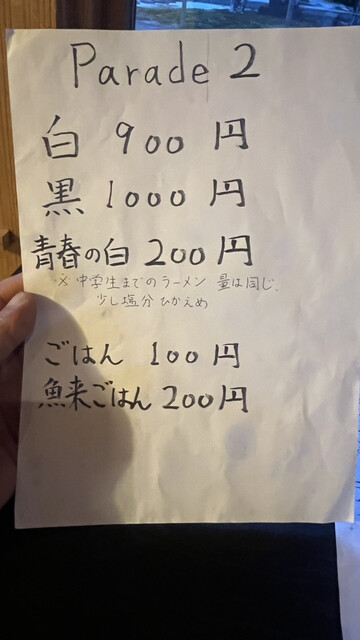 Parade 2
白 900 円
黒 1000 円
青春の白 200 円
※ 中学生までのラーメン 量は同じ.
少し塩分 ひかえめ
ごはん 100 円
魚来ごはん 200 円